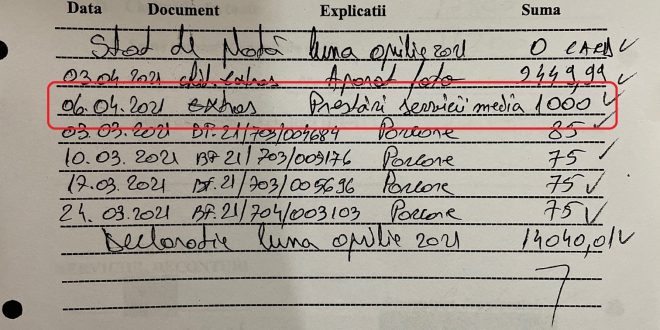 Data Document Explicatii Suma
Stat de Plată luna aprilie 2021 0
03.04.2021 extras Aparat foto 9449,99
06.04.2021 extras Prestări servicii media 1000
03.03.2021 BF.21/703/004684 Parcare 85
10.03.2021 BF 21/703/005176 Parcare 75
17.03.2021 BF.21/703/005696 Parcare 75
24.03.2021 BF.21/704/003103 Parcare 75
Declaratie luna aprilie 2021 14040,01